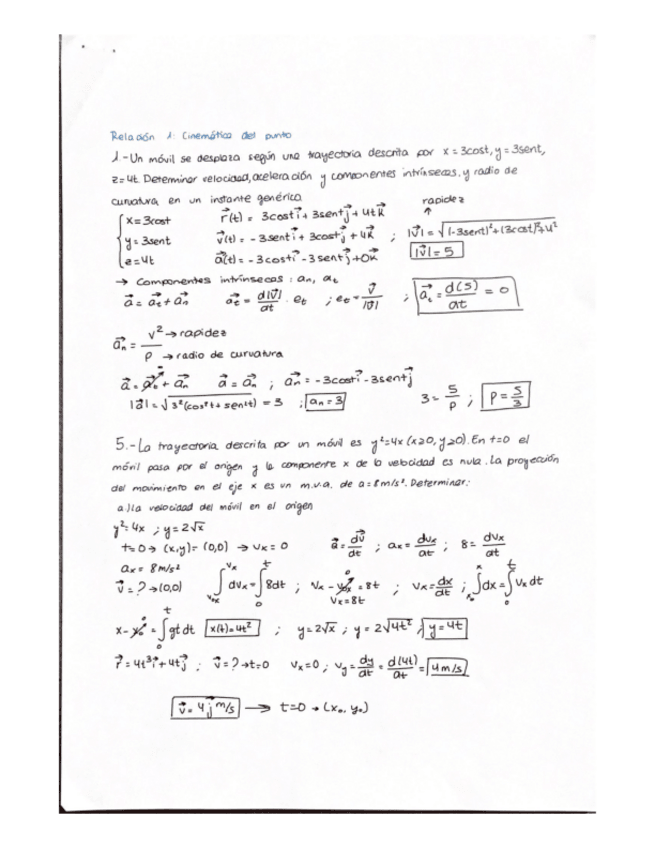 Relación 1: Cinemática del punto
1.-Un móvil se desplaza según una trayectoria descrita por x=3cost, y=3sent,
z=4t. Determinar velocidad, aceleración y componentes intrínsecas, y radio de
curvatura en un instante genérico.
rapidez
↑
{ x=3cost
y=3sent
z=4t
r⃗(t) = 3cost i⃗ + 3sent j⃗ + 4t k⃗
v⃗(t) = -3sent i⃗ + 3cost j⃗ + 4k⃗ ; |v⃗| = √(-3sent)²+(3cost)²+4²
a⃗(t) = -3cost i⃗ -3sent j⃗ +0k⃗ |v⃗|=5
→ Componentes intrínsecas: an, at
a⃗ = a⃗t + a⃗n a⃗t = d|v⃗|/dt · et ; et = v⃗/|v⃗| ; a⃗t = d(5)/dt = 0
a⃗n = v²/ρ
→ rapidez
→ radio de curvatura
a⃗ = a⃗t + a⃗n a⃗ = a⃗n ; a⃗n = -3cost i⃗ -3sent j⃗
|a⃗| = √3²(cos²t+sen²t) = 3 ; an=3 3 = 5/ρ ; ρ = 5/3
5.-La trayectoria descrita por un móvil es y²=4x (x≥0, y≥0). En t=0 el
móvil pasa por el origen y la componente x de la velocidad es nula. La proyección
del movimiento en el eje x es un m.u.a. de a=8m/s². Determinar:
a) la velocidad del móvil en el origen
y²=4x ; y=2√x
t=0 → (x,y)=(0,0) → vx=0 a⃗ = dv⃗/dt ; ax = dvx/dt ; 8 = dvx/dt
ax= 8m/s²
v⃗=? →(0,0) ∫vox^vx dvx = ∫0^t 8dt ; vx - vox = 8t ; vx = dx/dt ; ∫x0^x dx = ∫0^t vx dt
vx=8t
x-x0 = ∫0^t 8t dt x(t)=4t² ; y=2√x ; y=2√4t² ; y=4t
r⃗ = 4t² i⃗ + 4t j⃗ ; v⃗=? → t=0 vx=0 ; vy = dy/dt = d(4t)/dt = 4m/s
v⃗ = 4 j⃗ m/s → t=0 → (x0, y0)